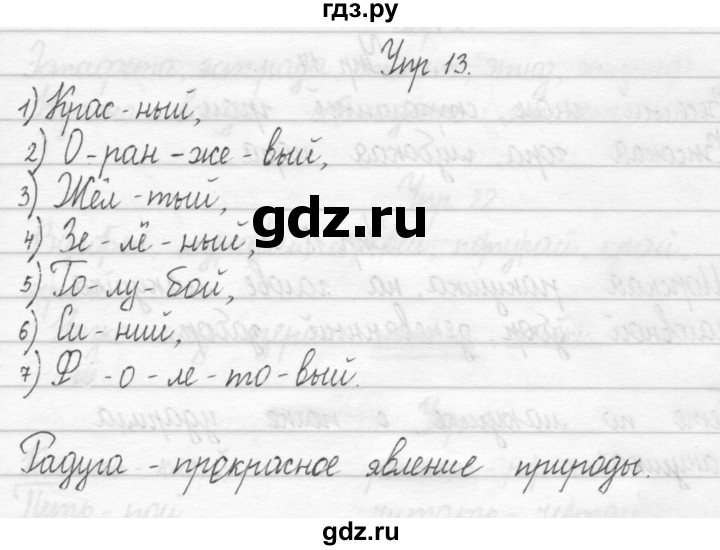 гдз.ру
Упр 13.
1) Крас-ный,
2) О-ран-же-вый,
3) Жёл-тый,
4) Зе-лё-ный,
gdz.ru
5) Го-лу-бой,
6) Си-ний,
7) Ф -о-ле-то-вый.
Радуга - прекрасное явление природы.
gdz.ru